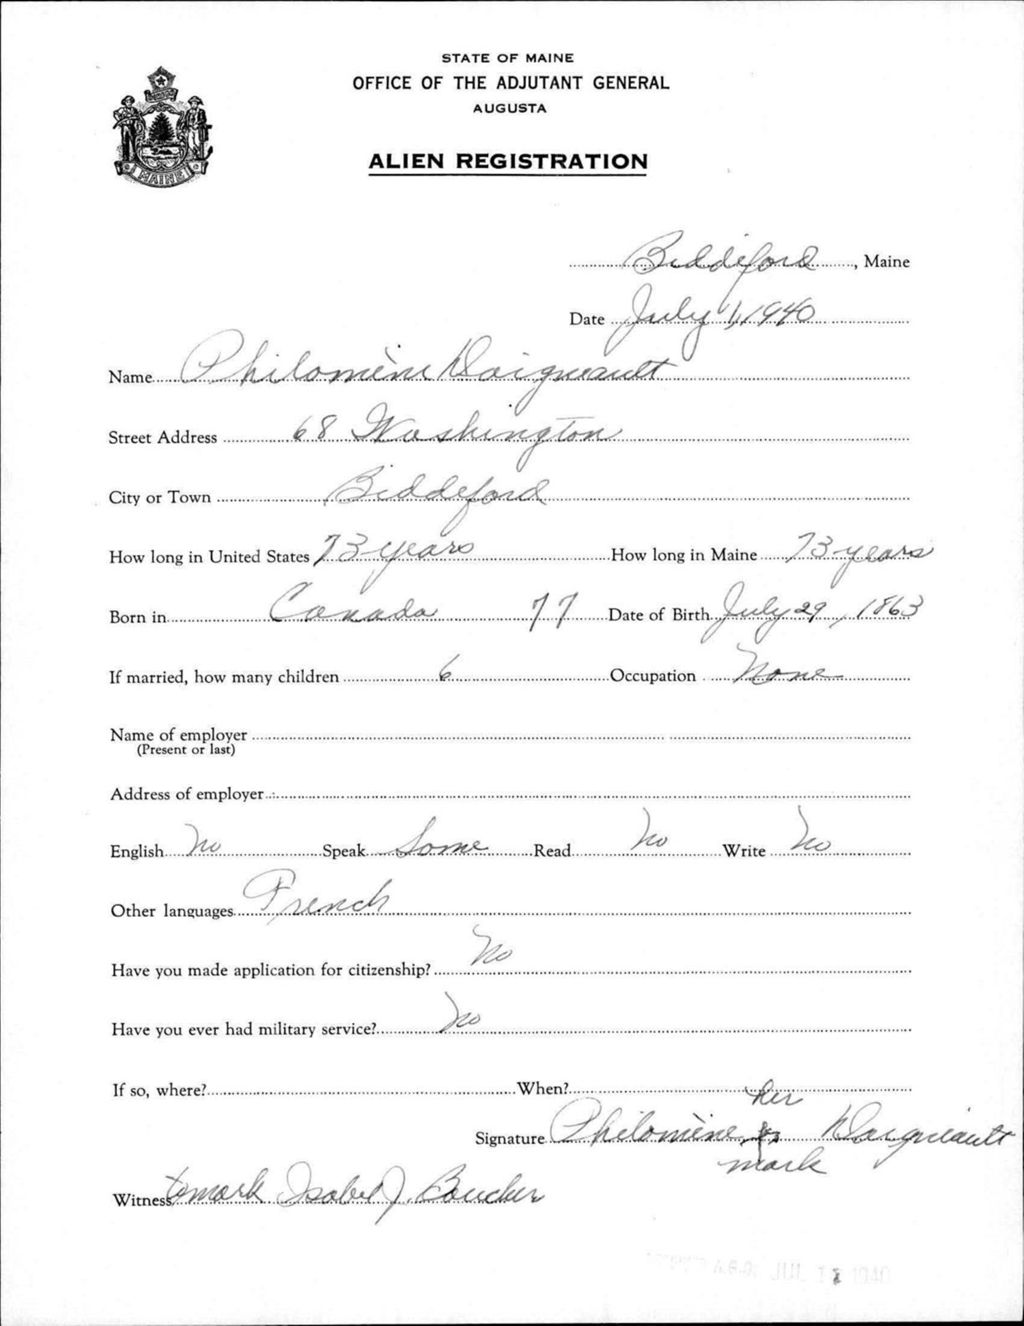 STATE OF MAINE
OFFICE OF THE ADJUTANT GENERAL
AUGUSTA
ALIEN REGISTRATION
MAINE
Biddeford, Maine
Date July 1, 1940
Name Philomène Daigneault
Street Address 68 Washington
City or Town Biddeford
How long in United States 73 years How long in Maine 73 years
Born in Canada 77 Date of Birth July 29, 1863
If married, how many children 6 Occupation None
Name of employer
(Present or last)
Address of employer
English No Speak Some Read No Write No
Other languages French
Have you made application for citizenship? No
Have you ever had military service? No
If so, where? When?
her
Signature Philomène x Daigneault
mark
Witness to mark Isabel J. Boucher
A.G.O. JUL 1940